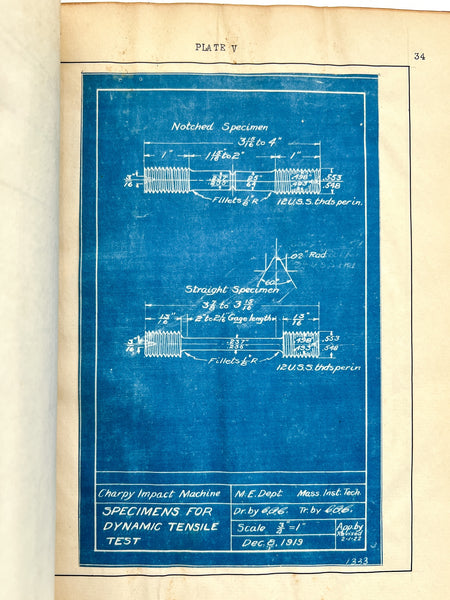 PLATE V
34
Notched Specimen
3 15/16 to 4"
1" 1 15/16 to 2" 1"
.498 .553
.493 .548
Fillets 1/8" R 12 U.S.S. thds per in.
.02" Rad
60°
Straight Specimen
3 7/8 to 3 15/16
13/16" 2" to 2 1/16 Gage length 13/16"
.498 .553
.493 .548
Fillets 1/8" R
12 U.S.S. thds per in
Charpy Impact Machine
M.E. Dept. Mass. Inst. Tech.
SPECIMENS FOR
DYNAMIC TENSILE
TEST
Dr. by Tr. by
Scale 3/4" = 1"
Dec. 8, 1919
App. by
Revised
2-1-22
1333